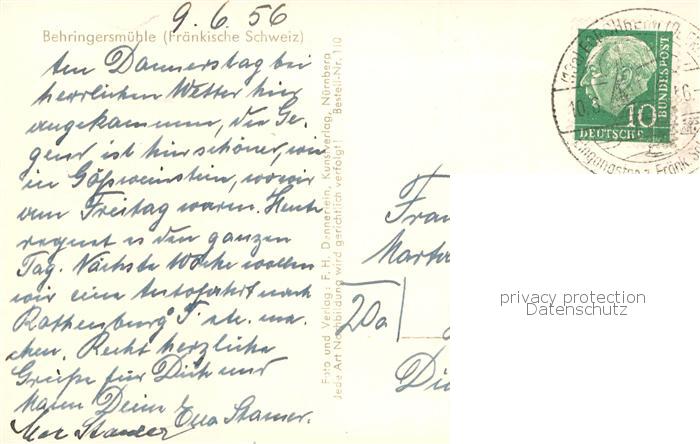 9.6.56
Behringersmühle (Fränkische Schweiz)
Am Donnerstag bei
herrlichem Wetter hier
angekommen, die Ge-
gend ist hier schöner, wie
in Gößweinstein, wo wir
am Freitag waren. Heute
regnet es den ganzen
Tag. Nächste Woche wollen
wir eine Autofahrt nach
Rothenburg o/T. etc. ma-
chen. Recht herzliche
Grüße für Dich und
Mann Deine Ella Stamer.
Max Stamer
Foto und Verlag: F. H. Dennerlein, Kunstverlag, Nürnberg
Jede Art Nachbildung wird gerichtlich verfolgt! Bestell-Nr. 110
10
DEUTSCHE
BUNDESPOST
FORCHHEIM
Frau
20a
privacy protection
Datenschutz